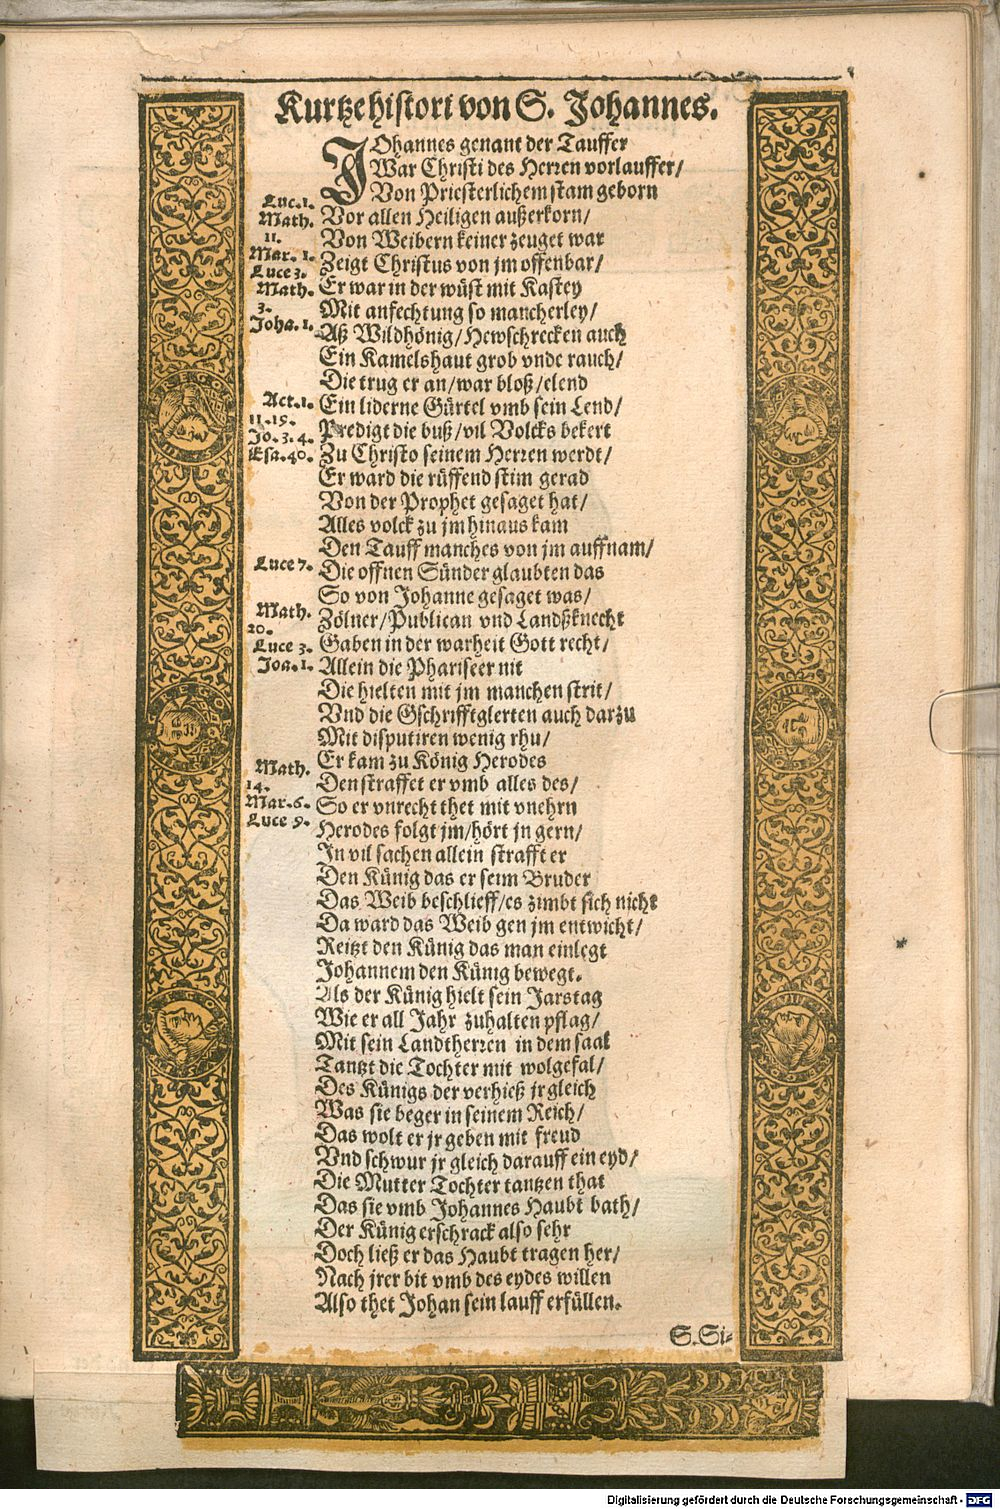 Kurtze histori von S. Johannes.
JOhannes genant der Tauffer
War Christi des Herren vorlauffer/
Von Priesterlichem stam geborn
Luc. 1.
Math. Vor allen Heiligen außerkorn/
11. Von Weibern keiner zeuget war
Mar. 1. Zeigt Christus von jm offenbar/
Luce 3.
Math. Er war in der wüst mit Kastey
3. Mit anfechtung so mancherley/
Joha. 1. Aß Wildhönig/Hewschrecken auch
Ein Kamelshaut grob vnde rauch/
Die trug er an/war bloß/elend
Act. 1. Ein liderne Gürtel vmb sein Lend/
11. 19. Predigt die buß/vil Volcks bekert
Jo. 3. 4.
Esa. 40. Zu Christo seinem Herren werdt/
Er ward die rüffend stim gerad
Von der Prophet gesaget hat/
Alles volck zu jm hinaus kam
Den Tauff manches von jm auffnam/
Luce 7. Die offnen Sünder glaubten das
So von Johanne gesaget was/
Math. Zölner/Publican vnd Landßknecht
20.
Luce 3. Gaben in der warheit Gott recht/
Joa. 1. Allein die Phariseer nit
Die hielten mit jm manchen strit/
Vnd die Gschrifftglerten auch darzu
Mit disputiren wenig rhu/
Math. Er kam zu König Herodes
14. Den straffet er vmb alles des/
Mar. 6. So er vnrecht thet mit vnehrn
Luce 9. Herodes folgt jm/hört jn gern/
In vil sachen allein strafft er
Den Künig das er seim Bruder
Das Weib beschlieff/es zimbt sich nicht
Da ward das Weib gen jm entwicht/
Reitzt den Künig das man einlegt
Johannem den Künig bewegt.
Als der Künig hielt sein Jarstag
Wie er all Jahr zuhalten pflag/
Mit sein Landtherren in dem saal
Tantzt die Tochter mit wolgefal/
Des Künigs der verhieß jr gleich
Was sie beger in seinem Reich/
Das wolt er jr geben mit freud
Vnd schwur jr gleich darauff ein eyd/
Die Mutter Tochter tantzen that
Das sie vmb Johannes Haubt bath/
Der Künig erschrack also sehr
Doch ließ er das Haubt tragen her/
Nach jrer bit vmb des eydes willen
Also thet Johan sein lauff erfüllen.
S. Si⸗
Digitalisierung gefördert durch die Deutsche Forschungsgemeinschaft - DFG